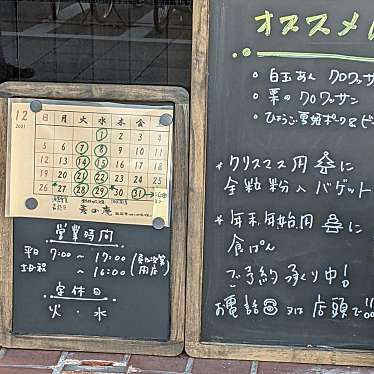 12
2021
日 月 火 水 木 金 土
1 2 3 4
5 6 7 8 9 10 11
12 13 14 15 16 17 18
19 20 21 22 23 24 25
26 27 28 29 30 31
麦の庵
営業時間
平日 7:00〜17:00
土日・祝 〜16:00
定休日
火・水
オススメ
・白玉あん クロワッサン
・栗の クロワッサン
・ひょうご雪姫ポーク&ビ
*クリスマス用に
全粒粉入バゲット
*年末年始用に
食ぱん
ご予約 承り中!
お電話 又は 店頭で